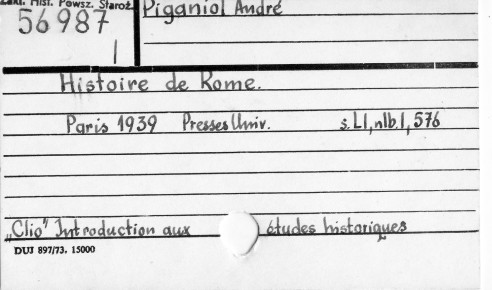 Zakł. Hist. Powsz. Staroż.
Piganiol André
56987
1
Histoire de Rome.
Paris 1939 Presses Univ. s. LI, nlb. 1, 576
„Clio" Introduction aux études historiques
DUJ 897/73. 15000